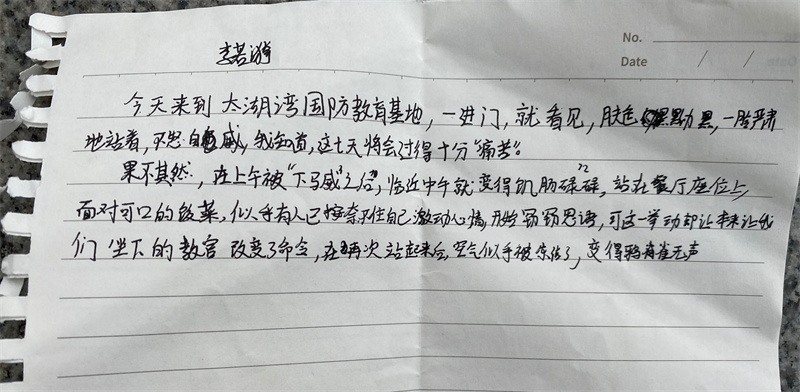 No.
Date / /
李若漪
今天来到太湖湾国防教育基地，一进门，就看见，肤色黝黑，一脸严肃
地站着，不怒自威，我知道，这七天将会过得十分“痛苦”。
果不其然，在上午被“下马威”之后，临近中午就变得饥肠碌碌，站在餐厅座位上，
面对可口的饭菜，似乎有人已按奈不住自己激动心情，开始窃窃思语，可这一举动却让本来让我
们坐下的教官改变了命令，在再次站起来后，空气似乎被冻结了，变得鸦雀无声